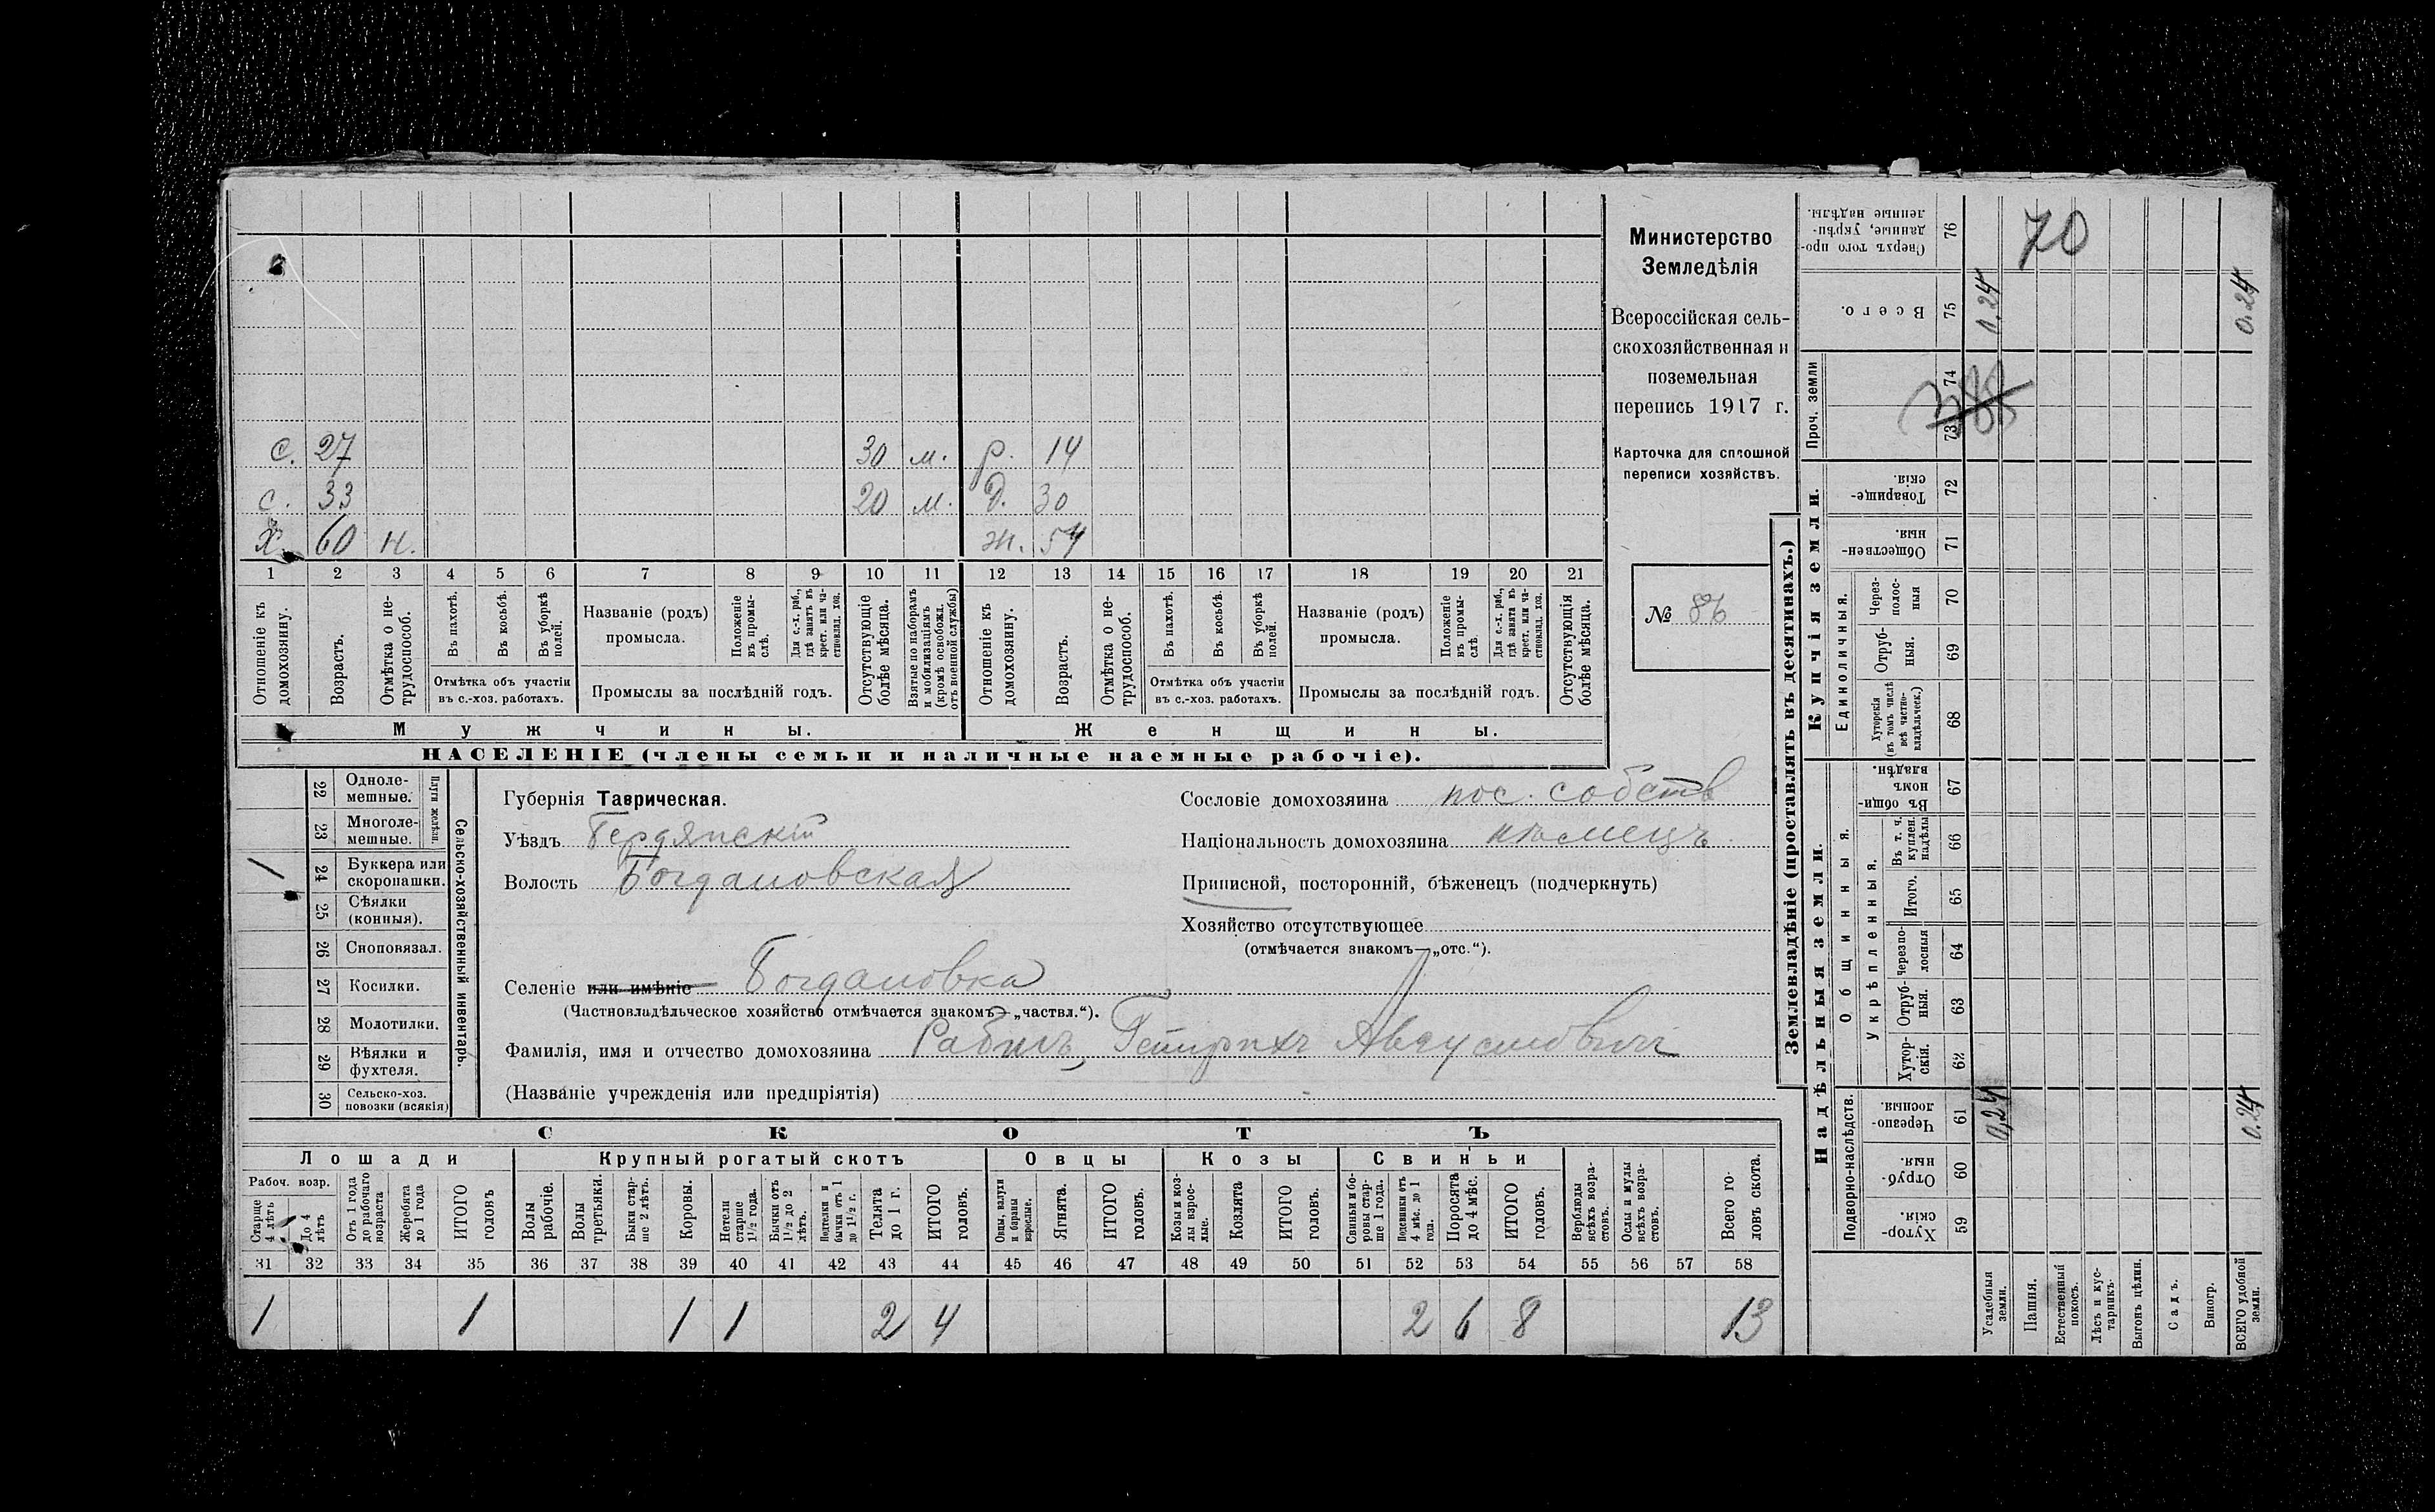 с. 27 30 м. р. 14
с. 33 20 м. д. 30
х. 60 н. ж. 54
1 2 3 4 5 6 7 8 9 10 11 12 13 14 15 16 17 18 19 20 21
Отношеніе къ домохозяину.
Возрастъ.
Отмѣтка о не-
трудоспособ.
Въ пахотѣ.
Въ косьбѣ.
Въ уборкѣ
полей.
Отмѣтка объ участіи
въ с.-хоз. работахъ.
Названіе (родъ)
промысла.
Положеніе
въ промы-
слѣ.
Для с.-х. раб.,
гдѣ занятъ въ
крест. или ча-
стновлад. хоз.
Промыслы за послѣдній годъ.
Отсутствующіе
болѣе мѣсяца.
Взятые по наборамъ
и мобилизаціямъ
(кромѣ освобожд.
отъ военной службы)
Отношеніе къ
домохозяину.
Возрастъ.
Отмѣтка о не-
трудоспособ.
Въ пахотѣ.
Въ косьбѣ.
Въ уборкѣ
полей.
Отмѣтка объ участіи
въ с.-хоз. работахъ.
Названіе (родъ)
промысла.
Положеніе
въ промы-
слѣ.
Для с.-х. раб.,
гдѣ занята въ
крест. или ча-
стновлад. хоз.
Промыслы за послѣдній годъ.
Отсутствующія
болѣе мѣсяца.
Мужчины.
Женщины.
НАСЕЛЕНІЕ (члены семьи и наличные наемные рабочіе).
Министерство
Земледѣлія
Всероссійская сель-
скохозяйственная и
поземельная
перепись 1917 г.
Карточка для сплошной
переписи хозяйствъ.
№ 86
22 Одноле-
мешные.
23 Многоле-
мешные.
Плуги желѣзн.
24 Буккера или
скоропашки.
25 Сѣялки
(конныя).
26 Сноповязал.
27 Косилки.
28 Молотилки.
29 Вѣялки и
фухтеля.
30 Сельско-хоз.
повозки (всякія)
Сельско-хозяйственный инвентарь.
Губернія Таврическая.
Уѣздъ Бердянскій
Волость Богдановская
Селеніе или имѣніе Богдановка
(Частновладѣльческое хозяйство отмѣчается знакомъ—„частвл.“).
Фамилія, имя и отчество домохозяина Гейнрихъ Августовичъ
(Названіе учрежденія или предпріятія)
Сословіе домохозяина пос. собств
Національность домохозяина нѣмецъ
Приписной, посторонній, бѣженецъ (подчеркнуть)
Хозяйство отсутствующее
(отмѣчается знакомъ—„отс.“).
СКОТЪ
Лошади
Крупный рогатый скотъ
Овцы
Козы
Свиньи
Рабоч. возр.
Старше
4 лѣтъ
До 4
лѣтъ
Отъ 1 года
до рабочаго
возраста
Жеребята
до 1 года
ИТОГО
головъ
Волы
рабочіе.
Волы
третьяки.
Быки стар-
ше 2 лѣтъ.
Коровы.
Нетели
старше
1½ года.
Бычки отъ
1½ до 2
лѣтъ.
Подтелки и
бычки отъ 1
до 1½ г.
Телята
до 1 г.
ИТОГО
головъ.
Овцы, валухи
и бараны
взрослые.
Ягнята.
ИТОГО
головъ.
Козы и коз-
лы взрос-
лые.
Козлята
ИТОГО
головъ.
Свиньи и бо-
ровы стар-
ше 1 года.
Подсвинки отъ
4 мѣс. до 1
года.
Поросята
до 4 мѣс.
ИТОГО
головъ.
Верблюды
всѣхъ возра-
стовъ.
Ослы и мулы
всѣхъ возра-
стовъ.
Всего го-
ловъ скота.
31 32 33 34 35 36 37 38 39 40 41 42 43 44 45 46 47 48 49 50 51 52 53 54 55 56 57 58
1 1 1 1 2 4 2 6 8 13
Землевладѣніе (проставлять въ десятинахъ.)
Сверхъ того про-
данные, укрѣп-
ленные надѣлы.
76
70
Всего.
75
0.24
0.24
Проч. земли
73 74
Купчія земли.
Товарище-
скія.
72
Обществен-
ныя.
71
Единоличныя.
Через-
полос-
ныя
70
Отруб-
ныя.
69
Хуторскія
(въ томъ числѣ
всѣ частно-
владѣльческ.)
68
Надѣльныя земли.
Общинныя.
Въ общин-
номъ
владѣн.
67
Укрѣпленныя.
Въ т. ч.
куплен.
надѣлы
66
Итого.
65
Черезпо-
лосныя
64
Отруб-
ныя.
63
Хутор-
скія.
62
Подворно-наслѣдств.
Черезпо-
лосныя.
61
0,24
0.24
Отруб-
ныя.
60
Хутор-
скія.
59
Усадебныя
земли.
Пашня.
Естественный
покосъ.
Лѣсъ и кус-
тарникъ.
Выгонъ цѣлин.
Садъ.
Виногр.
ВСЕГО удобной
земли.